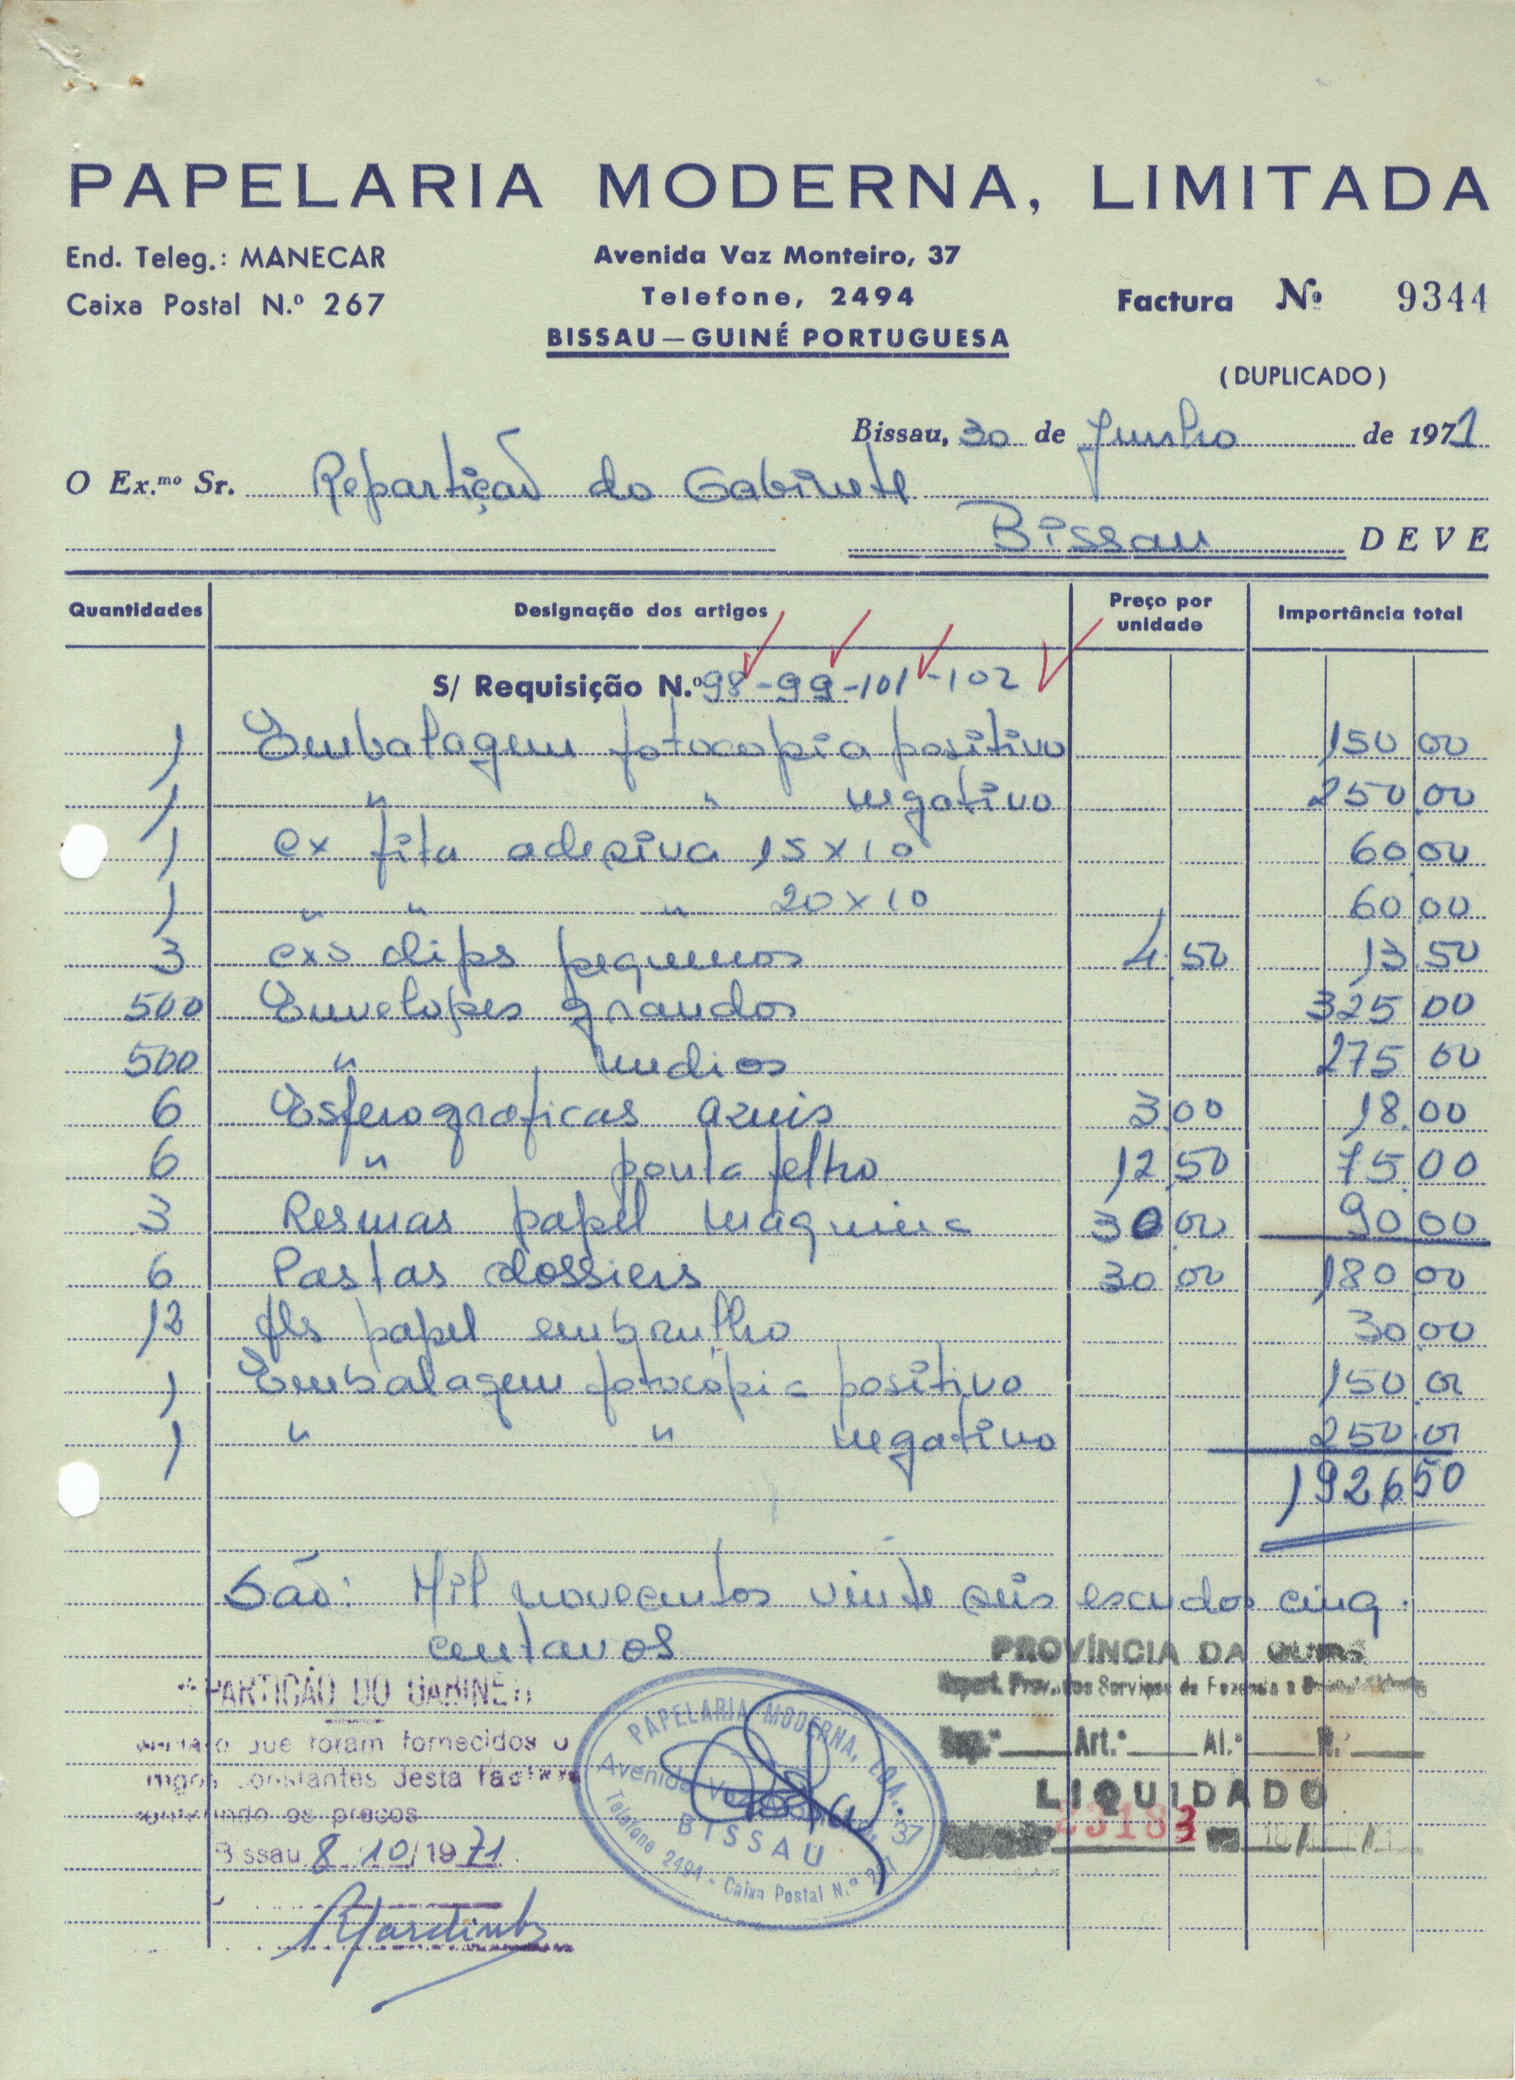 PAPELARIA MODERNA, LIMITADA
End. Teleg.: MANECAR
Caixa Postal N.º 267
Avenida Vaz Monteiro, 37
Telefone, 2494
BISSAU — GUINÉ PORTUGUESA
Factura Nº 9344
(DUPLICADO)
Bissau, 30 de Junho de 1971
O Ex.mo Sr. Repartição do Gabinete
Bissau DEVE
Quantidades Designação dos artigos Preço por unidade Importância total
S/ Requisição N.º 98-99-101-102
1 Embalagem fotocopia positivo 150,00
1 " " negativo 250,00
1 cx fita adesiva 15x10 60,00
1 " " " 20x10 60,00
3 cxs clips pequenos 4,50 13,50
500 Envelopes grandes 325,00
500 " medios 275,00
6 Esferograficas azuis 3,00 18,00
6 " ponta feltro 12,50 75,00
3 Resmas papel maquina 30,00 90,00
6 Pastas dossiers 30,00 180,00
12 fls papel embrulho 30,00
1 Embalagem fotocópia positivo 150,00
1 " " negativo 250,00
1926,50
São: Mil novecentos vinte seis escudos cinq.
centavos
PARTIÇÃO DO GABINETE
que foram fornecidos o
constantes desta factura
os preços
Bissau 8/10/1971
PAPELARIA MODERNA, LDA.
Avenida Vaz Monteiro, 37
BISSAU
Telefone 2494 - Caixa Postal N.º 267
PROVÍNCIA DA GUINÉ
Repart. Prov. dos Serviços de Fazenda e
Cap.º Art.º Al.ª N.º
LIQUIDADO
23183